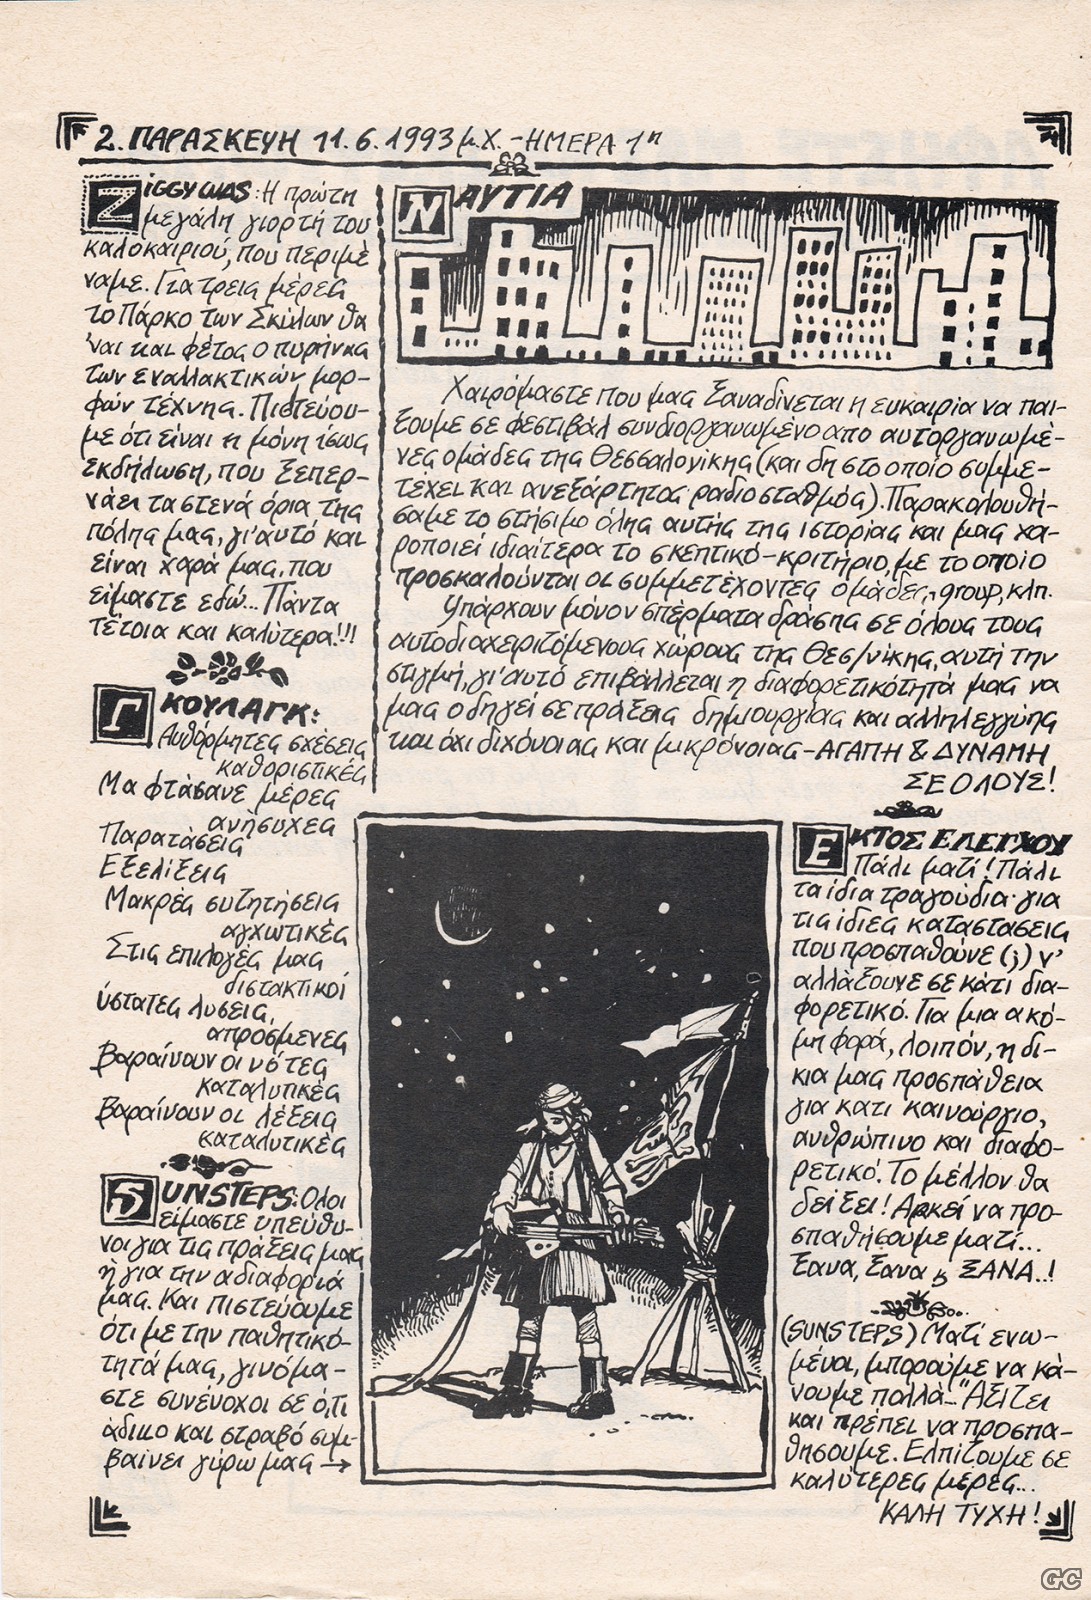 2. ΠΑΡΑΣΚΕΥΗ 11.6.1993 μ.Χ. - ΗΜΕΡΑ 1η
ZIGGY WAS: Η πρώτη
μεγάλη γιορτή του
καλοκαιριού, που περιμέ
ναμε. Για τρεις μέρες
το Πάρκο των Σκύλων θα
'ναι και φέτος ο πυρήνας
των εναλλακτικών μορ-
φών τέχνης. Πιστεύου-
με ότι είναι η μόνη ίσως
εκδήλωση, που ξεπερ-
νάει τα στενά όρια της
πόλης μας, γι'αυτό και
είναι χαρά μας, που
είμαστε εδώ... Πάντα
τέτοια και καλύτερα!!!
ΓΚΟΥΛΑΓΚ:
Αυθόρμητες σχέσεις
καθοριστικές
Μα φτάσανε μέρες
ανήσυχες
Παρατάσεις
Εξελίξεις
Μακρές συζητήσεις
αγχωτικές
Στις επιλογές μας
διστακτικοί
ύστατες λύσεις,
απρόσμενες
Βαραίνουν οι νότες
καταλυτικές
Βαραίνουν οι λέξεις
καταλυτικές
SUNSTEPS: Όλοι
είμαστε υπεύθυ-
νοι για τις πράξεις μας
ή για την αδιαφορία
μας. Και πιστεύουμε
ότι με την παθητικό-
τητά μας, γινόμα-
στε συνένοχοι σε ό,τι
άδικο και στραβό συμ-
βαίνει γύρω μας →
ΝΑΥΤΙΑ
Χαιρόμαστε που μας ξαναδίνεται η ευκαιρία να παί-
ξουμε σε φεστιβάλ συνδιοργανωμένο απο αυτοργανωμέ-
νες ομάδες της Θεσσαλονίκης (και δη στο οποίο συμμε-
τέχει και ανεξάρτητος ραδιοσταθμός). Παρακολουθή-
σαμε το στήσιμο όλης αυτής της ιστορίας και μας χα-
ροποιεί ιδιαίτερα το σκεπτικό-κριτήριο, με το οποίο
προσκαλούνται οι συμμετέχοντες ομάδες, group, κλπ.
Υπάρχουν μόνον σπέρματα δράσης σε όλους τους
αυτοδιαχειριζόμενους χώρους της Θεσ/νίκης, αυτή την
στιγμή, γι'αυτό επιβάλλεται η διαφορετικότητά μας να
μας οδηγεί σε πράξεις δημιουργίας και αλληλεγγύης
και όχι διχόνοιας και μικρόνοιας - ΑΓΑΠΗ & ΔΥΝΑΜΗ
ΣΕ ΟΛΟΥΣ!
ΕΚΤΟΣ ΕΛΕΓΧΟΥ
Πάλι μαζί! Πάλι
τα ίδια τραγούδια για
τις ίδιες καταστάσεις
που προσπαθούνε (;) ν'
αλλάξουνε σε κάτι δια-
φορετικό. Για μια ακό-
μη φορά, λοιπόν, η δι-
κια μας προσπάθεια
για κατι καινούργιο,
ανθρώπινο και διαφο-
ρετικό. Το μέλλον θα
δείξει! Αρκεί να προ-
σπαθήσουμε μαζί...
Ξανα, ξανα ϗ ΞΑΝΑ..!
(SUNSTEPS) Μαζί ενω-
μένοι, μπορούμε να κά-
νουμε πολλά. Αξίζει
και πρέπει να προσπα-
θήσουμε. Ελπίζουμε σε
καλύτερες μέρες...
ΚΑΛΗ ΤΥΧΗ!
GC